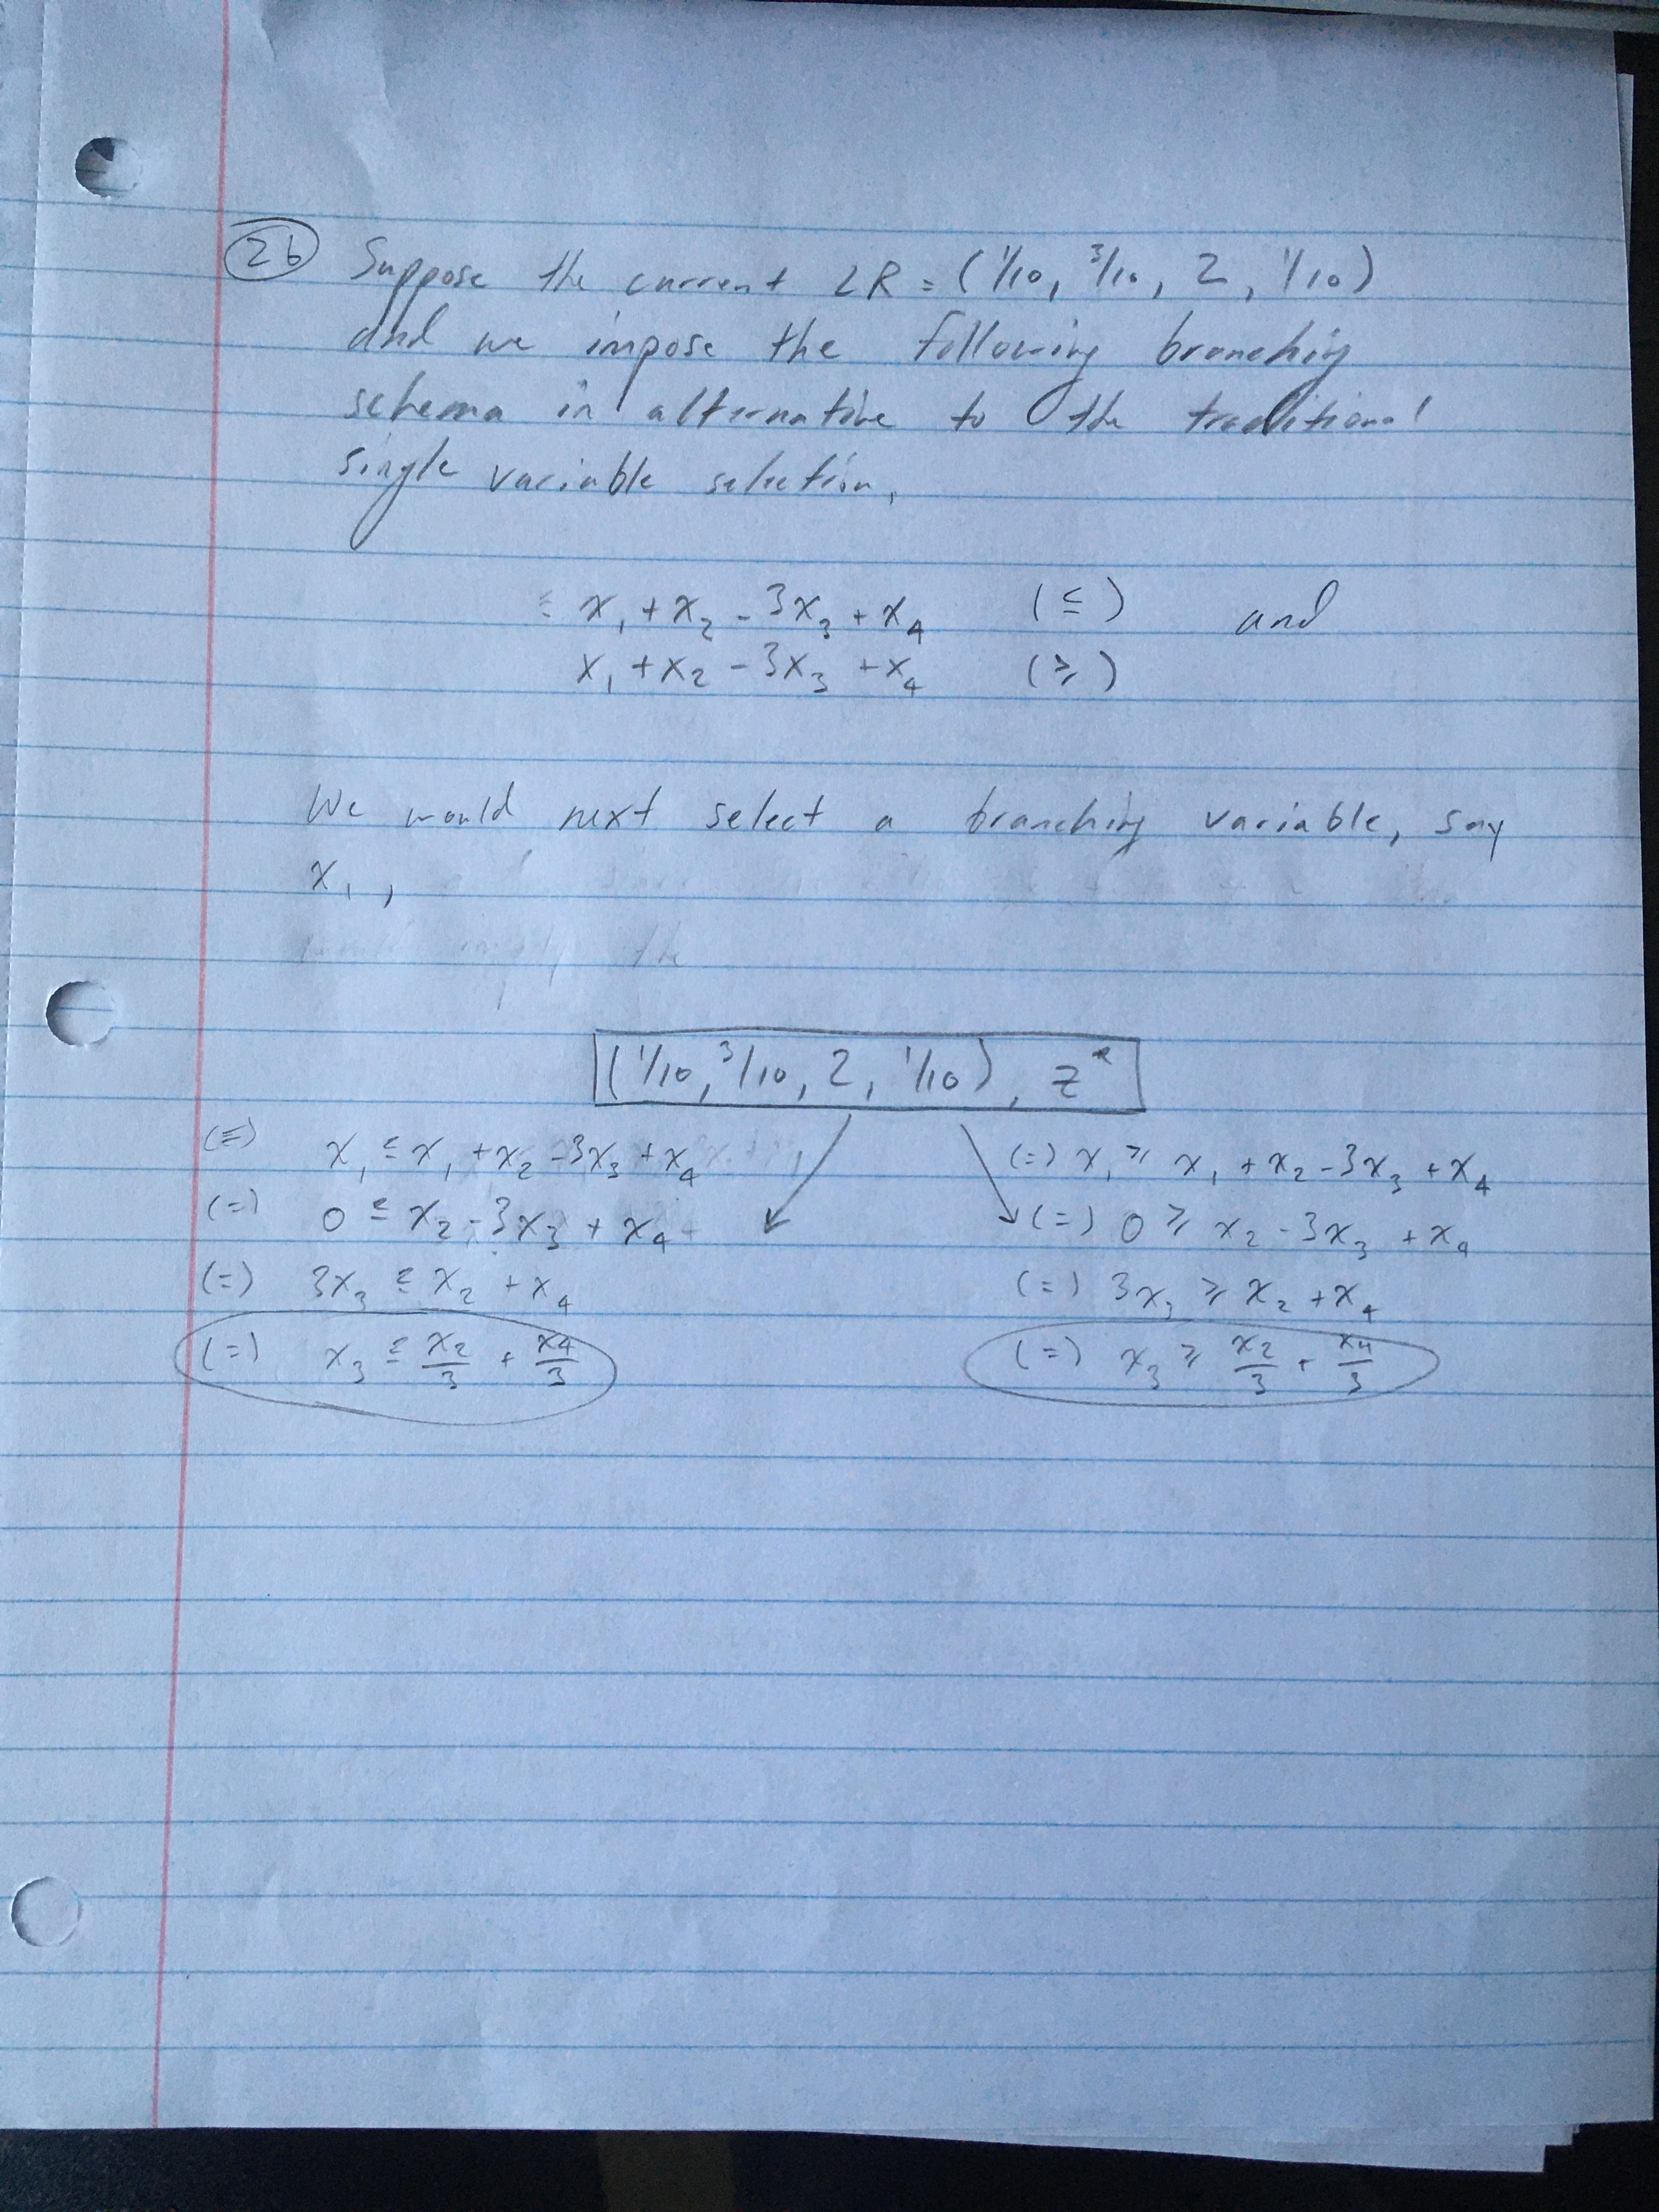 2b Suppose the current LR = (1/10, 3/10, 2, 1/10)
and we impose the following branching
schema in alternative to the traditional
single variable selection,
≤ x₁ + x₂ - 3x₃ + x₄ (≤) and
x₁ + x₂ - 3x₃ + x₄ (≥)
We would next select a branching variable, say
x₁,
(1/10, 3/10, 2, 1/10), z*
(=) x₁ ≤ x₁ + x₂ - 3x₃ + x₄ (=) x₁ ≥ x₁ + x₂ - 3x₃ + x₄
(=) 0 ≤ x₂ - 3x₃ + x₄ (=) 0 ≥ x₂ - 3x₃ + x₄
(=) 3x₃ ≤ x₂ + x₄ (=) 3x₃ ≥ x₂ + x₄
(=) x₃ ≤ x₂/3 + x₄/3 (=) x₃ ≥ x₂/3 + x₄/3